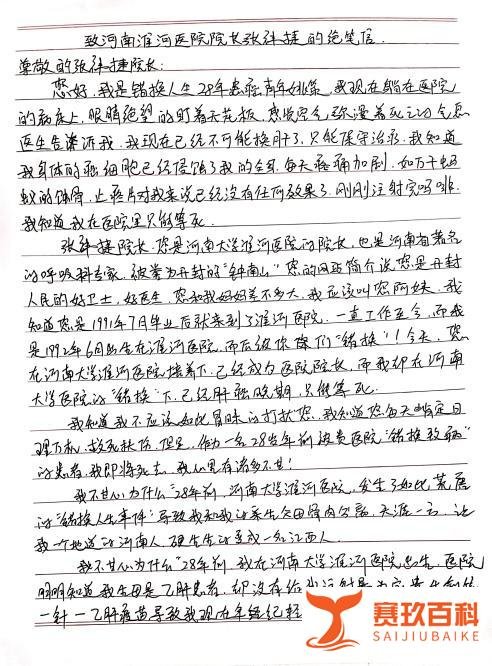 致河南淮河医院院长张祎捷的绝笔信
尊敬的张祎捷院长:
您好,我是错换人生28年患癌青年姚策,我现在躺在医院
的病床上,眼睛绝望的盯着天花板,感觉完全弥漫着死亡的气息
医生告诉我,我现在已经不可能换肝了,只能保守治疗,我知道
我身体的癌细胞已经侵蚀了我的全身,每天疼痛加剧,如万千蚂
蚁的蚀骨,止疼片对我来说已经没有任何效果了,刚刚注射完吗啡,
我知道我在医院里只能等死。
张祎捷院长,您是河南大学淮河医院的院长,也是河南省著名
的呼吸科专家,被誉为开封的“钟南山”您的网站简介说您是开封
人民的好卫士,好医生,您和我妈妈差不多大,我应该叫您阿姨,我
知道您是1991年7月毕业后就来到了淮河医院,一直工作至今,而我
是1992年6月出生在淮河医院,而后被你们“错换”!今天,您
在河南大学淮河医院接着下,已经成为医院院长,而我却在河南
大学医院的“错换”下,已经肝癌晚期,只能等死。
我知道我不应该如此冒昧的打扰您,我知道您每天肯定日
理万机,救死扶伤,但是,作为一个28岁年前被贵医院“错换致病”
的患者,我即将死去,我心里有诸多不甘!
我不甘心为什么“28年前,河南大学淮河医院,发生了如此荒唐
的“错换人生事件”导致我和我的亲生父母骨肉分离,天涯一方,让
我一个地道的河南人,硬生生的变成一名江西人。
我不甘心为什么“28年前,我在河南大学淮河医院出生,医院
明明知道我生母是乙肝患者,却没有给我注射
一针一乙肝疫苗导致我现在年纪轻
赛玖百科
SAIJIUBAIKE